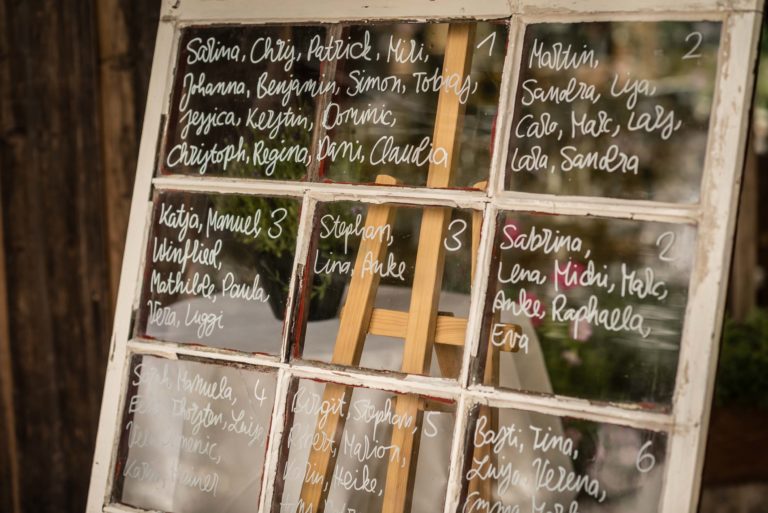 Sarina, Chris, Patrick, Miri, 1
Johanna, Benjamin, Simon, Tobias,
Jessica, Kerstin, Dominic,
Christoph, Regina, Dani, Claudia
Martin, 2
Sandra, Lisa,
Caro, Marc, Lars,
Lara, Sandra
Katja, Manuel, 3
Winfried,
Mathilde, Paula,
Vera, Luggi
Stephan, 3
Lina, Anke
Sabrina, 2
Lena, Michi, Marc,
Anke, Raphaela,
Eva
Manuela, 4
Thorsten,
Birgit, Stephan, 5
Robert, Marion,
Karin, Heike,
Basti, Tina, 6
Luisa, Verena,
Emma,